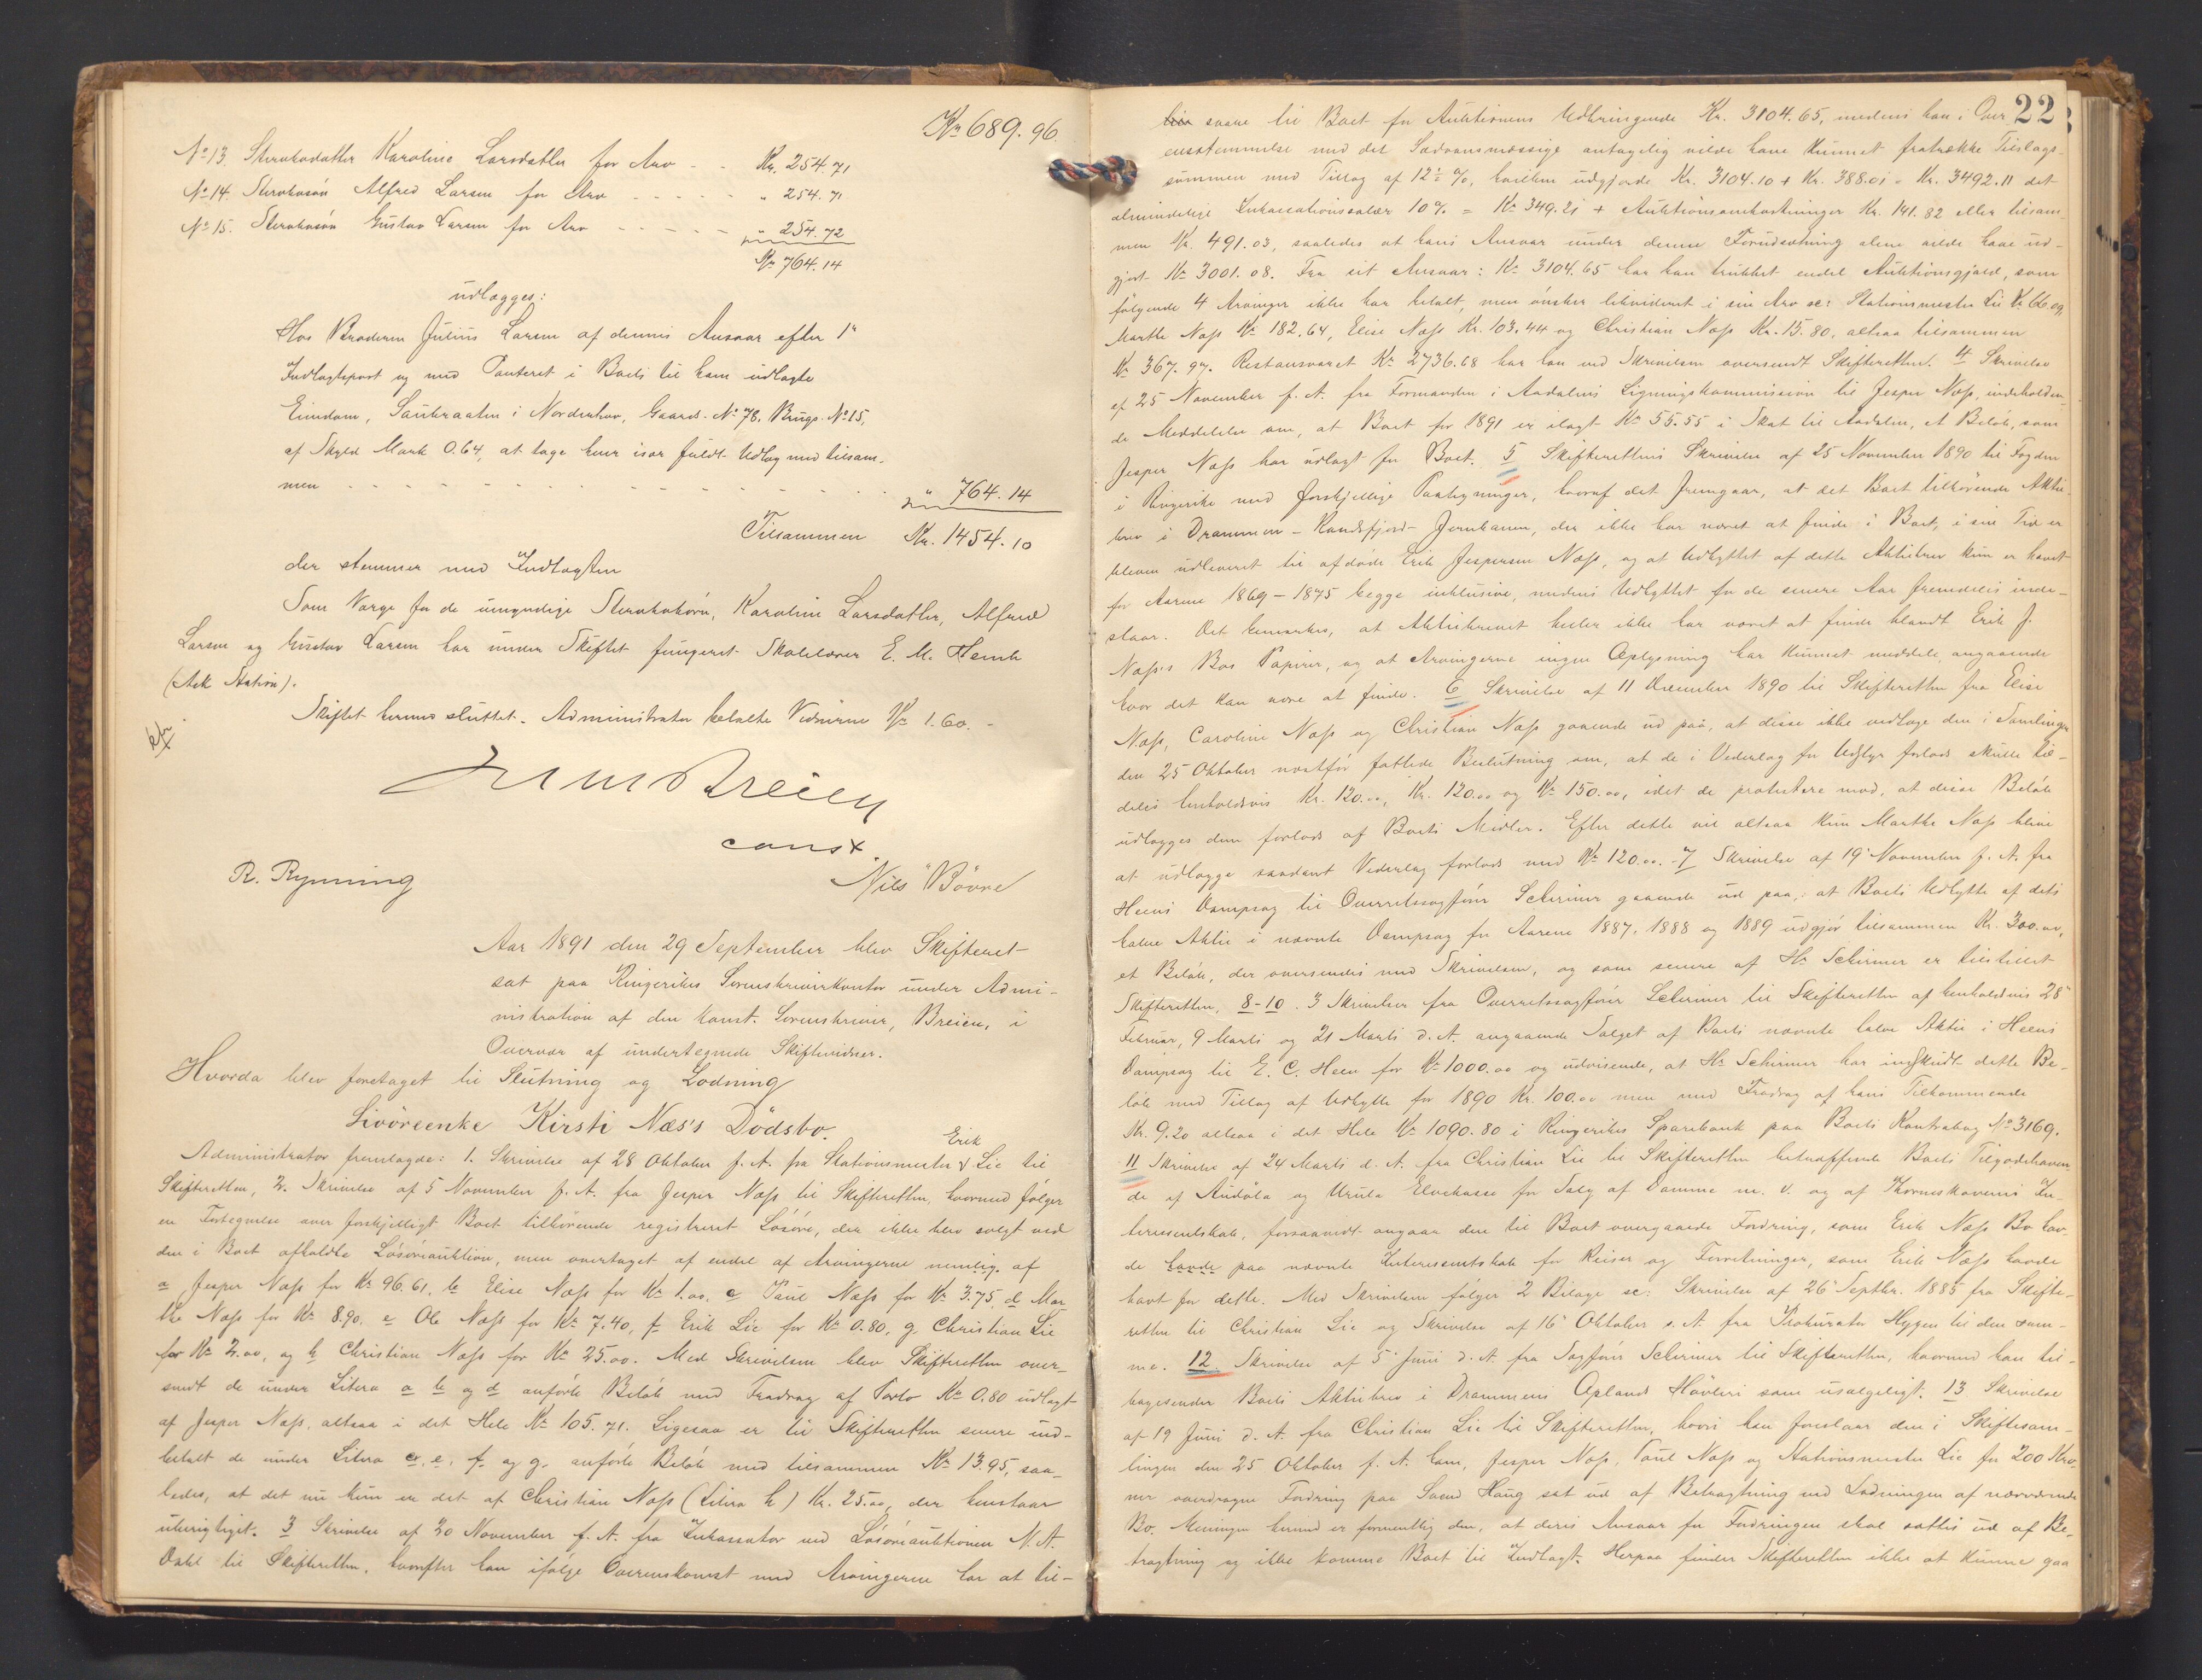 Kr 689.96
No 13. Stervbodatter Karoline Larsdatter for Arv - - Kr. 254.71
No 14. Stervbosøn Alfred Larsen for Arv - - - - - " 254.71
No 15. Stervbosøn Gustav Larsen for Arv - - - - - " 254.72
Kr 764.14
udlægges:
Hos Broderen Julius Larsen af dennes Ansvar efter 1ste
Indtægtspost og med Panteret i Boets til ham udlagte
Eiendom, i Norderhov, Gaards-No 78, Brugs-No 15,
af Skyld Mark 0.64, at tage hver især fuldt Udlæg med tilsam-
men - - - - - - - - - - - - - - " 764.14
Tilsammen Kr. 1454.10
der stemmer med Indtægten
Som Værge for de umyndige Stervbobørn, Karoline Larsdatter, Alfred
Larsen og Gustav Larsen har under Skiftet fungeret Skolelærer E. M.
(Ask Station).
Skiftet hermed sluttet. Administrator betalte Vidnerne Kr 1.60. -
Breien
const
R. Rynning
Nils Bøvre
Aar 1891 den 29 September blev Skifteret
sat paa Ringerikes Sorenskriverkontor under Admi-
nistration af den konst. Sorenskriver, Breien, i
Overvær af undertegnede Skiftevidner.
Hvorda blev foretaget til Slutning og Lodning
Livøreenke Kirsti Næs's Dødsbo.
Erik
Administrator fremlagde: 1. Skrivelse af 28 Oktober f. A. fra Stationsmester Lie til
Skifteretten, 2. Skrivelse af 5 November f. A. fra Jesper Næss til Skifteretten, hvormed følger
en Fortegnelse over forskjelligt Boet tilhørende registreret Løsøre, der ikke blev solgt ved
den i Boet afholdte Løsøreauktion, men overtaget af endel af Arvingerne nemlig af
a Jesper Næss for Kr 96.61, b Elise Næss for Kr 1.00, c Paul Næss for Kr 3.75, d Mar-
the Næss for Kr 8.90, e Ole Næss for Kr 7.40, f Erik Lie for Kr 0.80, g. Christian Lie
for Kr 2.00, og h Christian Næss for Kr 25.00. Med Skrivelsen blev Skifteretten over-
sendt de under Litera a b og d anførte Beløb med Fradrag af Porto Kr 0.80 udlagt
af Jesper Næss, altsaa i det Hele Kr 105.71. Ligesaa er til Skifteretten senere ind-
betalt de under Litera c, e, f og g. anførte Beløb med tilsammen Kr 13.95, saa-
ledes, at det nu kun er det af Christian Næss (Litera h) Kr. 25.00, der henstaar
uberigtiget. 3 Skrivelse af 20 November f. A. fra Inkassator ved Løsøreauktionen N. A.
Dahl til Skifteretten, hvorefter han ifølge Overenskomst med Arvingerne har at til-
22
svare til Boet for Auktionens Udbringende Kr. 3104.65, medens han i Over-
ensstemmelse med det Sædvansmæssige antagelig vilde have kunnet fratrække Tilslags-
summen med Tillæg af 12½ %, hvilken udgjorde Kr. 3104.10 + Kr. 388.01 = Kr. 3492.11 det
almindelige Inkassationssalær 10% = Kr 349.21 + Auktionsomkostninger Kr. 141.82 eller tilsam-
men Kr. 491.03, saaledes at hans Ansvar under denne Forudsætning alene vilde have ud-
gjort Kr 3001.08. Fra sit Ansvar: Kr 3104.65 har han trukket endel Auktionsgjæld, som
følgende 4 Arvinger ikke har betalt, men ønsker likvideret i sin Arv sc: Stationsmester Lie Kr 66.09,
Marthe Næss Kr 182.64, Elise Næss Kr. 103.44 og Christian Næss Kr. 15.80, altsaa tilsammen
Kr 367.97. Restansvaret Kr 2736.68 har han ved Skrivelsen oversendt Skifteretten. 4 Skrivelse
af 25 November f. A. fra Formanden i Aadalens Ligningskommission til Jesper Næss, indeholden-
de Meddelelse om, at Boet for 1891 er ilagt Kr 55.55 i Skat til Aadalen, et Beløb, som
Jesper Næss har udlagt for Boet. 5 Skifterettens Skrivelse af 25 November 1890 til Fogden
i Ringerike med forskjellige Paategninger, hvoraf det fremgaar, at det Boet tilhørende Aktie-
brev i Drammen-Randsfjord-Jernbanen, der ikke har været at finde i Boet, i sin Tid er
bleven udleveret til afdøde Erik Jespersen Næss, og at Udbyttet af dette Aktiebrev kun er hævet
for Aarene 1869-1875 begge inklusive, medens Udbyttet for de senere Aar fremdeles inde-
staar. Det bemærkes, at Aktiebrevet heller ikke har været at finde blandt Erik J.
Næss's Bos Papirer, og at Arvingerne ingen Oplysning har kunnet meddele angaaende
hvor det kan være at finde. 6 Skrivelse af 11 December 1890 til Skifteretten fra Elise
Næss, Caroline Næss og Christian Næss gaaende ud paa, at disse ikke vedtage den i Samlingen
den 25 Oktober næstfør fattede Beslutning om, at de i Vederlag for Udstyr forlods skulle til-
deles henholdsvis Kr. 120.00, Kr. 120.00 og Kr 150.00, idet de protestere mod, at disse Beløb
udlægges dem forlods af Boets Midler. Efter dette vil altsaa kun Marthe Næss blive
at udlægge saadant Vederlag forlods med Kr 120.00. - 7 Skrivelse af 19 November f. A. fra
Heens Dampsag til Overretssagfører Schirmer gaaende ud paa, at Boets Udbytte af dets
halve Aktie i nævnte Dampsag for Aarene 1887, 1888 og 1889 udgjør tilsammen Kr. 300.00,
et Beløb, der oversendes med Skrivelsen, og som senere af Hr Schirmer er tilstillet
Skifteretten, 8-10. 3 Skrivelser fra Overretssagfører Schirmer til Skifteretten af henholdsvis 28
Februar, 9 Marts og 21 Marts d. A. angaaende Salget af Boets nævnte halve Aktie i Heens
Dampsag til E. C. Heen for Kr 1000.00 og udvisende, at Hr Schirmer har indskudt dette Be-
løb med Tillæg af Udbytte for 1890 Kr. 100.00 men med Fradrag af hans Tilkommende
Kr. 9.20 altsaa i det Hele Kr 1090.80 i Ringerikes Sparebank paa Boets Kontrabog No 3169.
11 Skrivelse af 24 Marts d. A. fra Christian Lie til Skifteretten betræffende Boets Tilgodehaven-
de af Aadøla og Urula Elvekasse for Salg af Damme m. v. og af In-
teressentskab, forsaavidt angaar den til Boet overgaaede Fordring, som Erik Næss Bo hav-
de havde paa nævnte Interessentskab for Reiser og Forretninger, som Erik Næss havde
havt for dette. Med Skrivelsen følger 2 Bilage sc: Skrivelse af 26 Septbr. 1885 fra Skifte-
retten til Christian Lie og Skrivelse af 16 Oktober s. A. fra Prokurator Hygen til den sam-
me. 12. Skrivelse af 5 Juni d. A. fra Sagfører Schirmer til Skifteretten, hvormed han til-
bagesender Boets Aktiebrev i Drammens Oplands Høvleri som usælgeligt. 13 Skrivelse
af 19 Juni d. A. fra Christian Lie til Skifteretten, hvori han foreslaar den i Skiftesam-
lingen den 25 Oktober f. A. ham, Jesper Næss, Paul Næss og Stationsmester Lie for 200 Kro-
ner overdragne Fordring paa Svend Haug sat ud af Betragtning ved Lodningen af nærværende
Bo. Meningen hermed er formentlig den, at deres Ansvar for Fordringen skal sættes ud af Be-
tragtning og ikke komme Boet til Indtægt. Herpaa finder Skifteretten ikke at kunne gaa